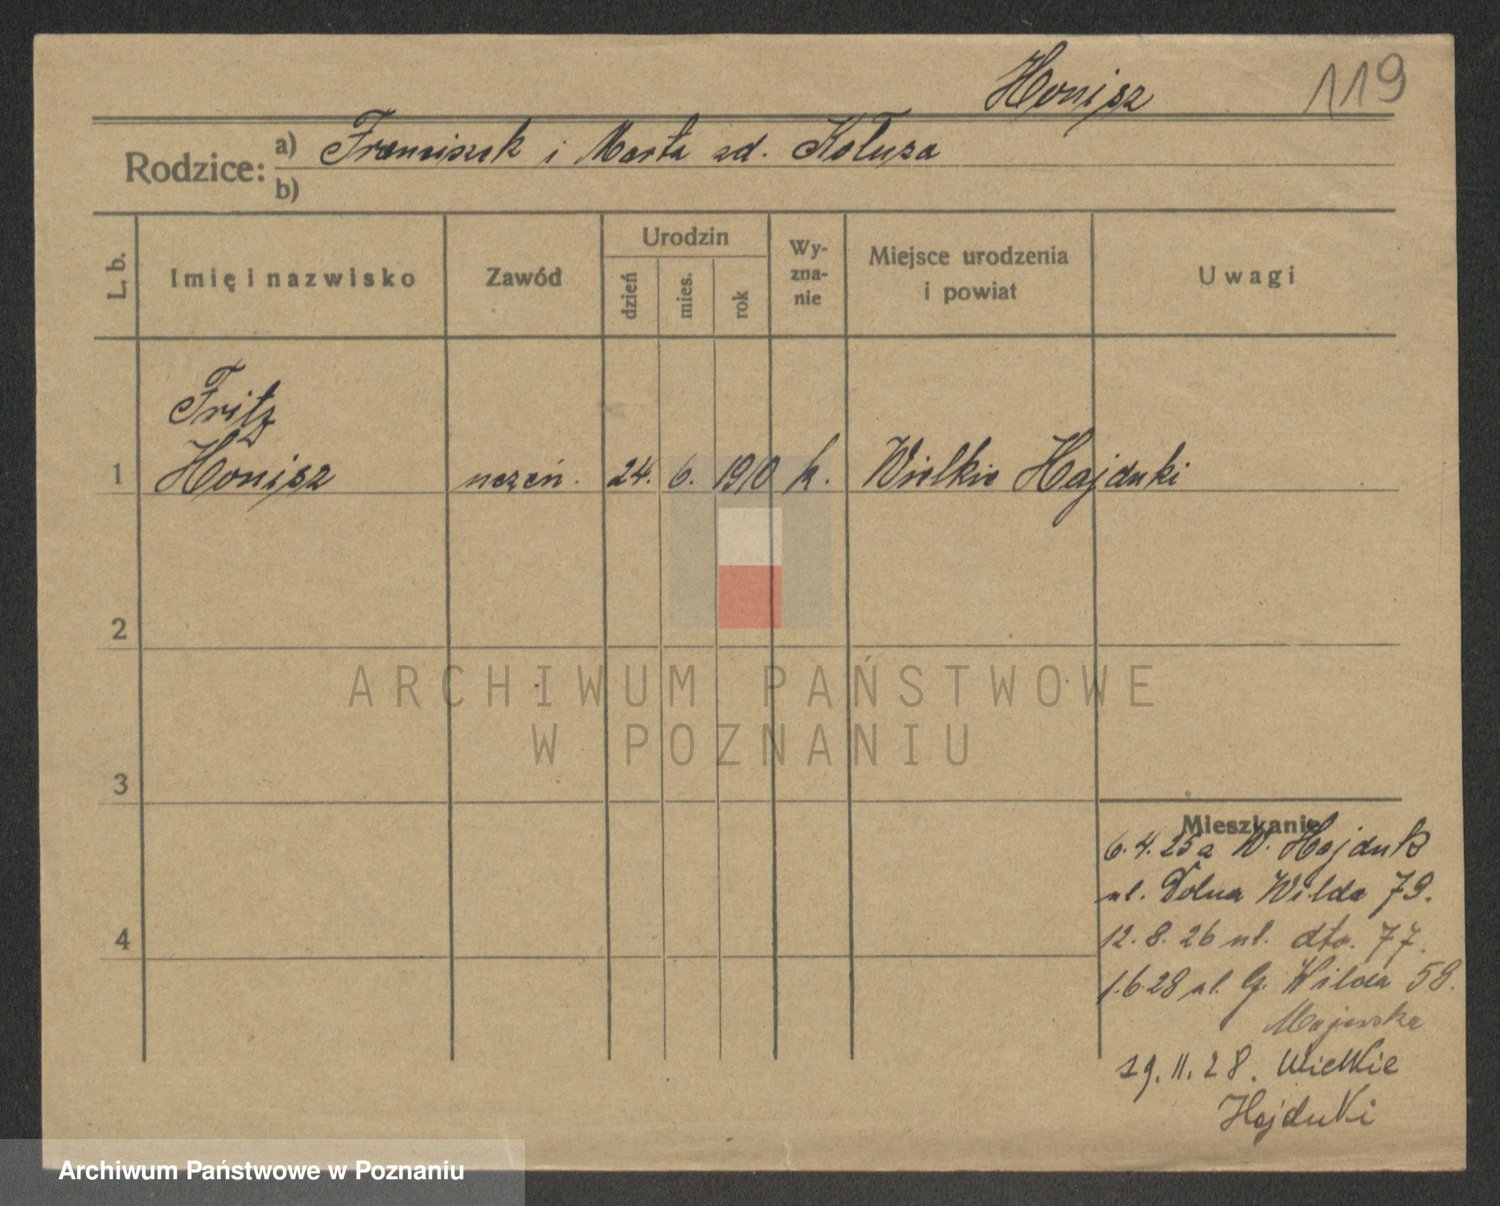 Honisz 119
Rodzice: a) Franciszek i Marta zd. Kołuza
b)
L. b. Imię i nazwisko Zawód Urodzin dzień mies. rok Wyzna-nie Miejsce urodzenia i powiat Uwagi
Fritz
1 Honisz uczeń. 24. 6. 1910 k. Wielkie Hajduki
2
ARCHIWUM PAŃSTWOWE
W POZNANIU
3
Mieszkanie
6. 4. 25 a W. Hajduk
ul. Dolna Wilda 79.
4
12. 8. 26 ul. dto. 77.
1.6.28 ul. G. Wilda 58.
Majewska
29. 11. 28. Wielkie
Hajduki
Archiwum Państwowe w Poznaniu